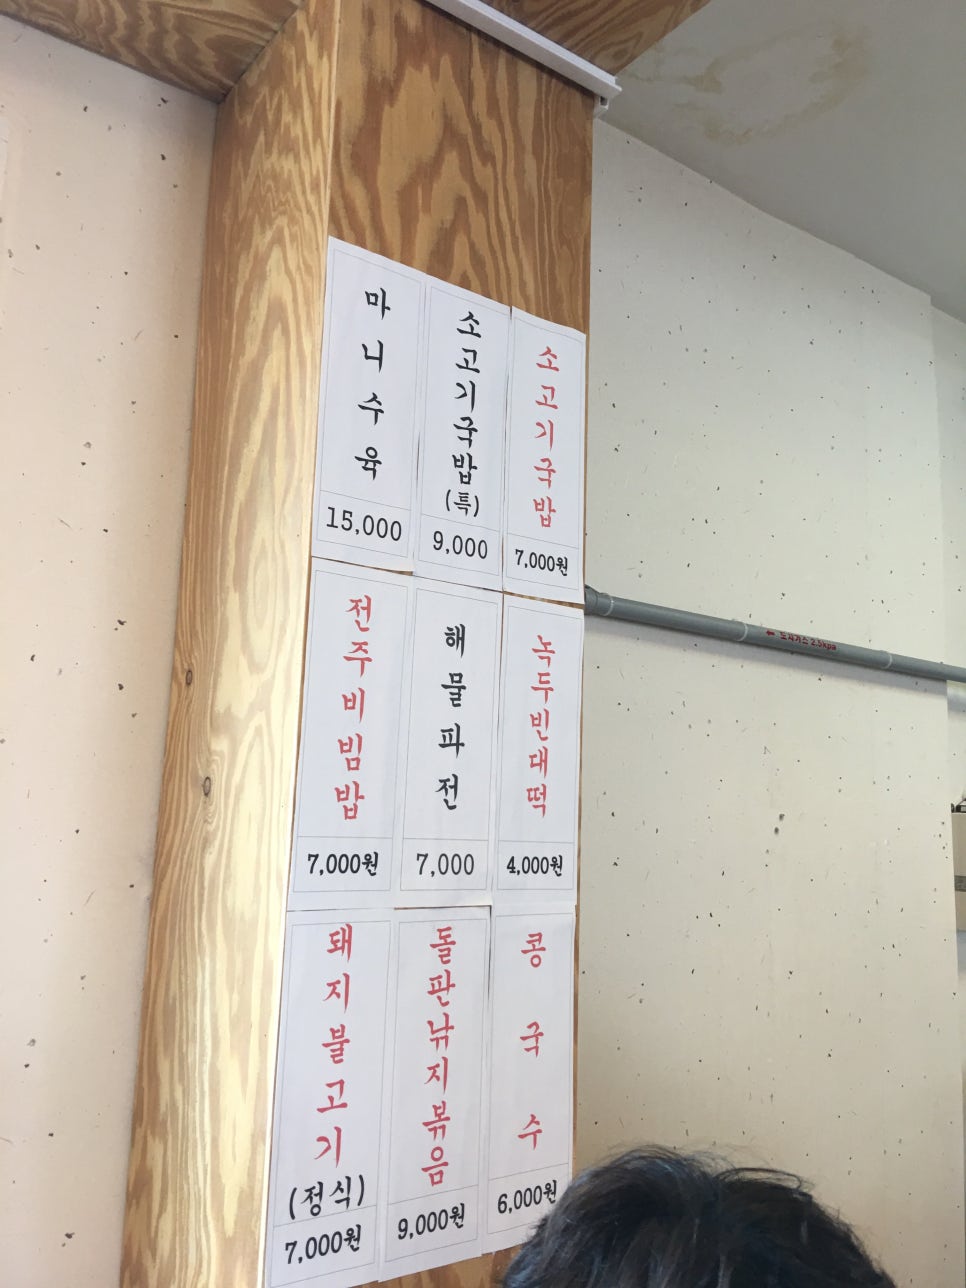 마니수육
15,000
소고기국밥(특)
9,000
소고기국밥
7,000원
전주비빔밥
7,000원
해물파전
7,000
녹두빈대떡
4,000원
돼지불고기(정식)
7,000원
돌판낚지볶음
9,000원
콩국수
6,000원
← 도시가스 2.5kpa